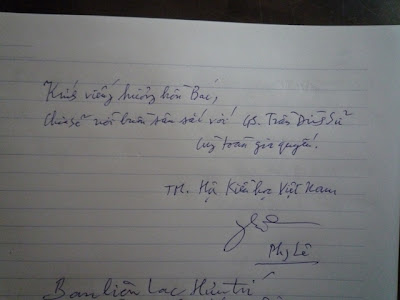 Kính viếng hương hồn Bác,
Chia sẻ nỗi buồn sâu sắc với GS. Trần Đình Sử
cùng toàn gia quyến.
TM. Hội Kiều học Việt Nam
Ban liên lạc Hưu trí